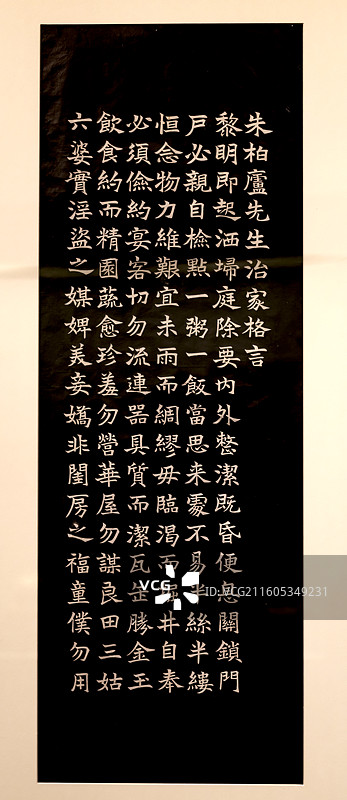 朱柏廬先生治家格言
黎明即起洒埽庭除要内外整潔既昏便息關鎖門
戶必親自檢點一粥一飯當思来處不易半絲半縷
恒念物力維艱宜未雨而綢繆毋臨渴而掘井自奉
必須儉約宴客切勿流連器具質而潔瓦缶勝金玉
飲食約而精園蔬愈珍羞勿營華屋勿謀良田三姑
六婆實淫盜之媒婢美妾嬌非閨房之福童僕勿用
VCG
ID:VCG211605349231